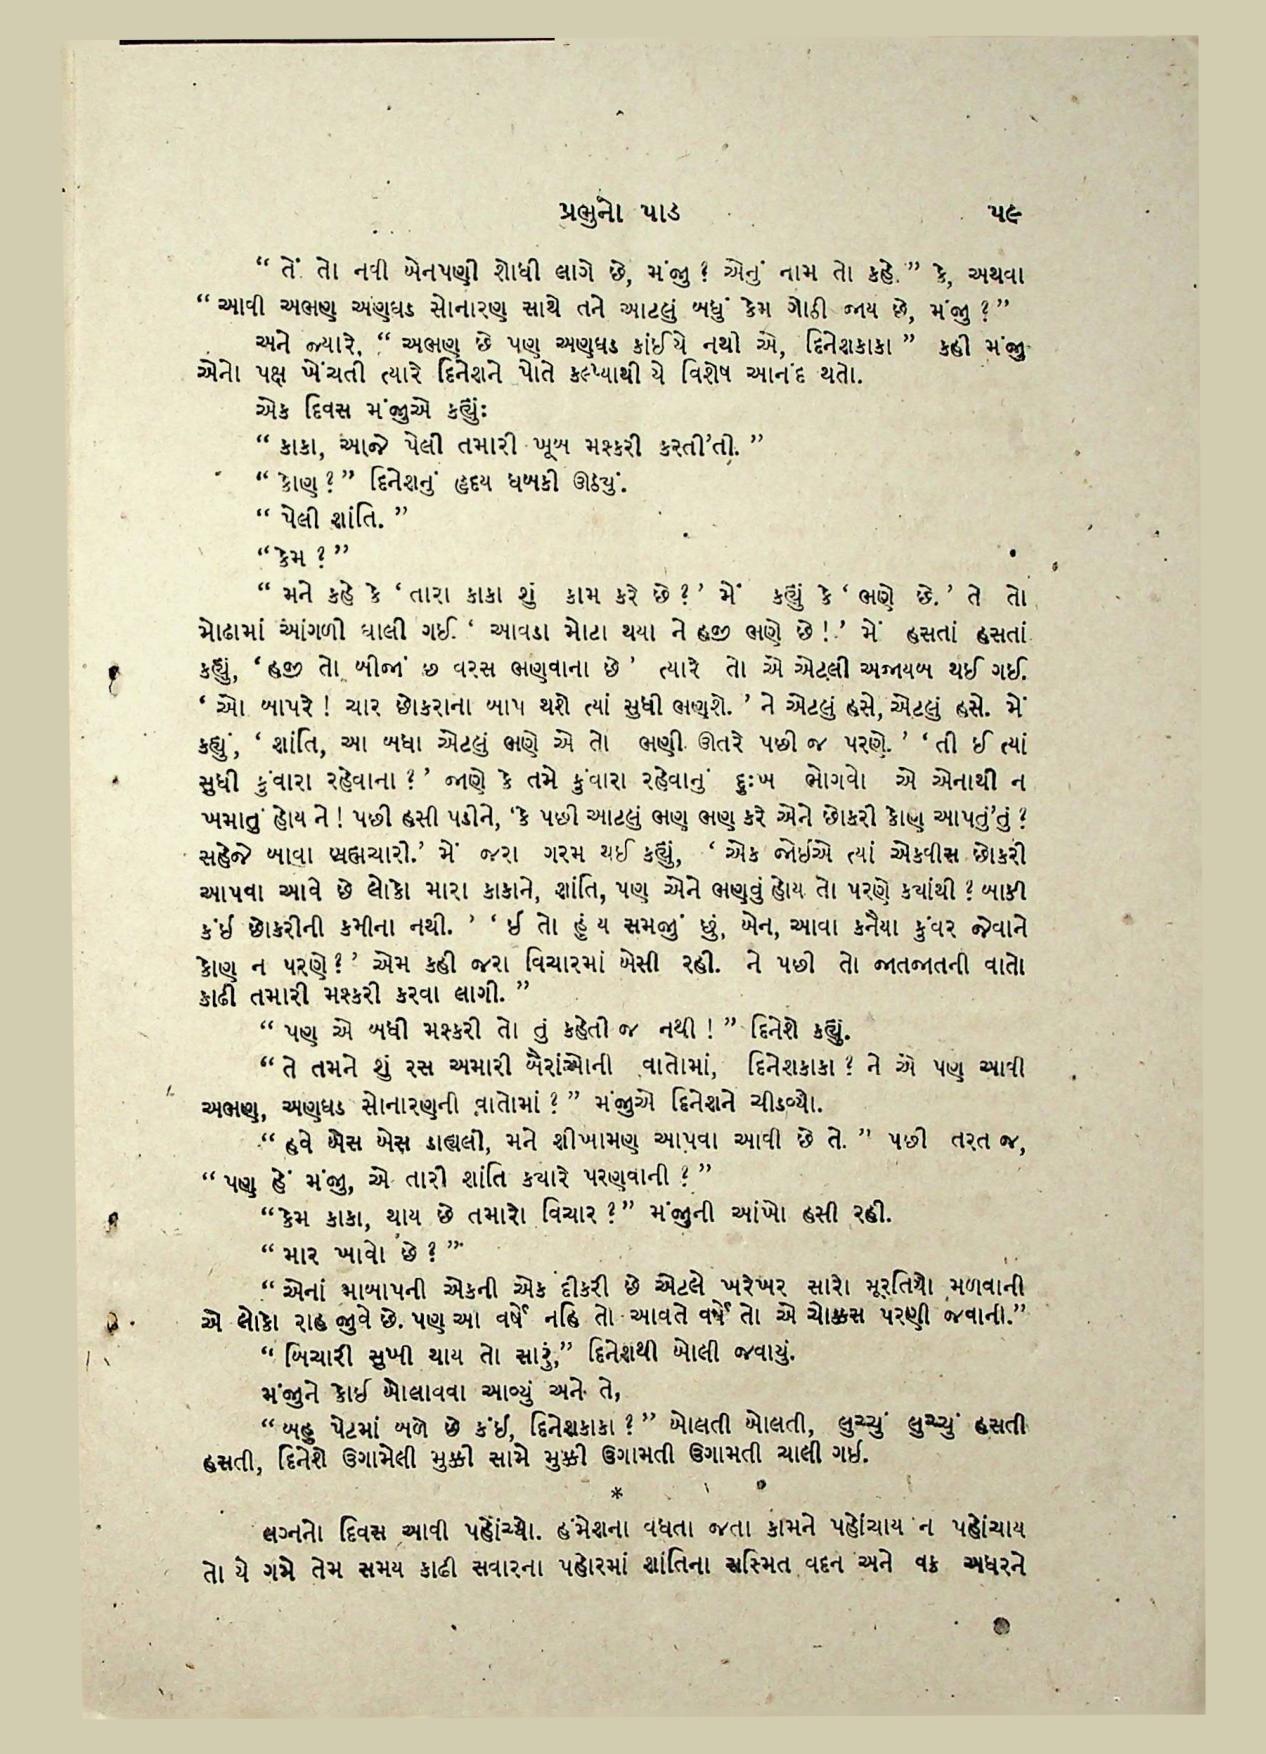 પ્રભુનો પાડ ૫૯
“ તેં તો નવી બેનપણી શોધી લાગે છે, મંજુ ? એનું નામ તો કહે.” કે, અથવા
“ આવી અભણ અણઘડ સોનારણ સાથે તને આટલું બધું કેમ ગોઠી જાય છે, મંજુ ? ”
અને જ્યારે, “ અભણ છે પણ અણઘડ કાંઈયે નથી એ, દિનેશકાકા ” કહી મંજુ
એનો પક્ષ ખેંચતી ત્યારે દિનેશને પોતે કલ્પ્યાથી યે વિશેષ આનંદ થતો.
એક દિવસ મંજુએ કહ્યુંઃ
“ કાકા, આજે પેલી તમારી ખૂબ મશ્કરી કરતી'તી. ”
“ કોણ ? ” દિનેશનું હૃદય ધબકી ઊઠ્યું.
“ પેલી શાંતિ. ”
“ કેમ ? ”
“ મને કહે કે ‘ તારા કાકા શું કામ કરે છે ? ’ મેં કહ્યું કે ‘ ભણે છે. ’ તે તો
મોઢામાં આંગળી ઘાલી ગઈ. ‘ આવડા મોટા થયા ને હજી ભણે છે ! ’ મેં હસતાં હસતાં
કહ્યું, ‘ હજી તો બીજાં છ વરસ ભણવાના છે ’ ત્યારે તો એ એટલી અજાયબ થઈ ગઈ.
‘ ઓ બાપરે ! ચાર છોકરાના બાપ થશે ત્યાં સુધી ભણશે. ’ ને એટલું હસે, એટલું હસે. મેં
કહ્યું, ‘ શાંતિ, આ બધા એટલું ભણે એ તો ભણી ઊતરે પછી જ પરણે. ’ ‘ તી ઈ ત્યાં
સુધી કુંવારા રહેવાના ? ’ જાણે કે તમે કુંવારા રહેવાનું દુઃખ ભોગવો એ એનાથી ન
ખમાતું હોય ને ! પછી હસી પડીને, ‘કે પછી આટલું ભણ ભણ કરે એને છોકરી કોણ આપતું'તું ?
સહેજે બાવા બ્રહ્મચારી.’ મેં જરા ગરમ થઈ કહ્યું, ‘ એક જોઈએ ત્યાં એકવીસ છોકરી
આપવા આવે છે લોકો મારા કાકાને, શાંતિ, પણ એને ભણવું હોય તો પરણે ક્યાંથી ? બાકી
કંઈ છોકરીની કમીના નથી. ’ ‘ ઈ તો હું ય સમજું છું, બેન, આવા કનૈયા કુંવર જેવાને
કોણ ન પરણે ? ’ એમ કહી જરા વિચારમાં બેસી રહી. ને પછી તો જાતજાતની વાતો
કાઢી તમારી મશ્કરી કરવા લાગી. ”
“ પણ એ બધી મશ્કરી તો તું કહેતી જ નથી ! ” દિનેશે કહ્યું.
“ તે તમને શું રસ અમારી બૈરાંઓની વાતોમાં, દિનેશકાકા ? ને એ પણ આવી
અભણ, અણઘડ સોનારણની વાતોમાં ? ” મંજુએ દિનેશને ચીડવ્યો.
“ હવે બેસ બેસ ડાહ્યલી, મને શીખામણ આપવા આવી છે તે. ” પછી તરત જ,
“ પણ હેં મંજુ, એ તારી શાંતિ ક્યારે પરણવાની ? ”
“ કેમ કાકા, થાય છે તમારો વિચાર ? ” મંજુની આંખો હસી રહી.
“ માર ખાવો છે ? ”
“ એનાં માબાપની એકની એક દીકરી છે એટલે ખરેખર સારો મૂરતિયો મળવાની
એ લોકો રાહ જીવે છે. પણ આ વર્ષે નહિ તો આવતે વર્ષે તો એ ચોક્કસ પરણી જવાની.”
“ બિચારી સુખી થાય તો સારું,” દિનેશથી બોલી જવાયું.
મંજુને કોઈ બોલાવવા આવ્યું અને તે,
“ બહુ પેટમાં બળે છે કંઈ, દિનેશકાકા ? ” બોલતી બોલતી, લુચ્ચું લુચ્ચું હસતી
હસતી, દિનેશે ઉગામેલી મુક્કી સામે મુક્કી ઉગામતી ઉગામતી ચાલી ગઈ.
*
લગ્નનો દિવસ આવી પહોંચ્યો. હંમેશના વધતા જતા કામને પહોંચાય ન પહોંચાય
તો યે ગમે તેમ સમય કાઢી સવારના પહોરમાં શાંતિના સસ્મિત વદન અને વક્ર અધરને